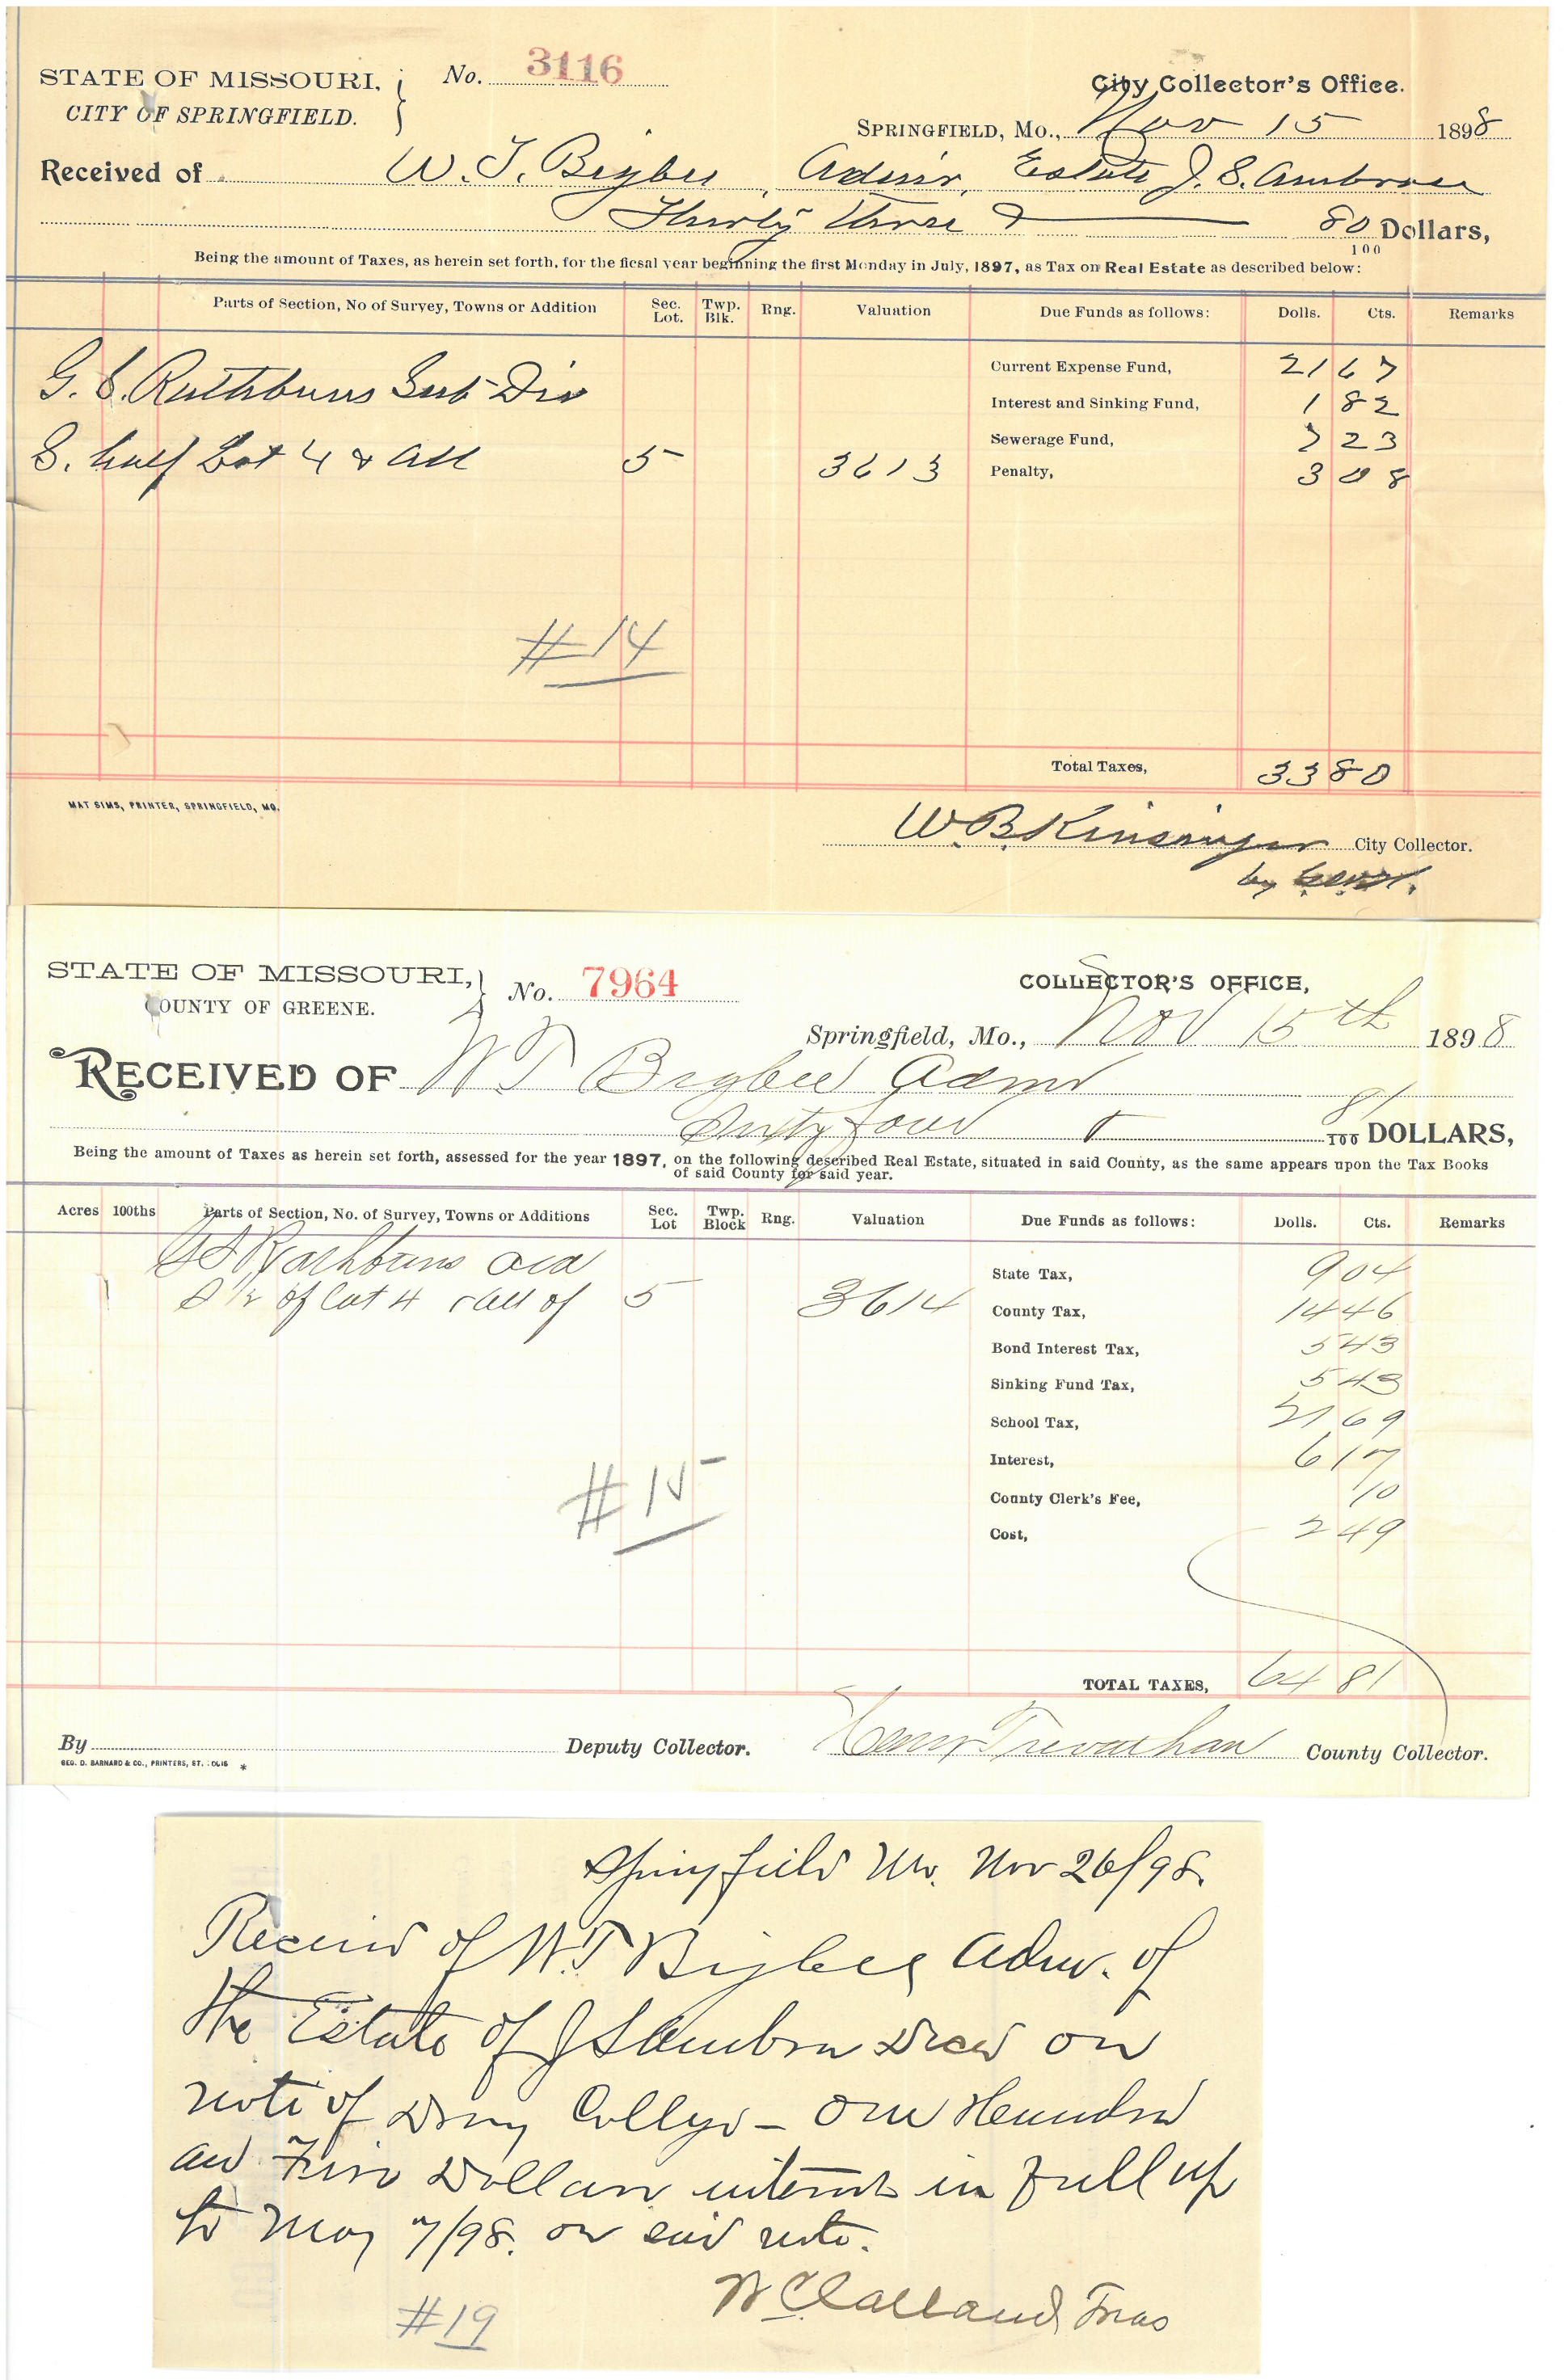 STATE OF MISSOURI,
CITY OF SPRINGFIELD.
No. 3116
City Collector's Office.
SPRINGFIELD, Mo., Nov 15 1898
Received of W. T. Bigbee, Admr, Estate J. S. Ambrose
Thirty three & 80/100 Dollars,
Being the amount of Taxes, as herein set forth, for the ficsal year beginning the first Monday in July, 1897, as Tax on Real Estate as described below:
Parts of Section, No of Survey, Towns or Addition Sec. Lot. Twp. Blk. Rng. Valuation Due Funds as follows: Dolls. Cts. Remarks
Current Expense Fund, 21 67
G. S. Rathbuns Sub-Div
Interest and Sinking Fund, 1 82
Sewerage Fund, 7 23
S. half Lot 4 & all 5 3613 Penalty, 3 08
#14
Total Taxes, 33 80
MAT SIMS, PRINTER, SPRINGFIELD, MO.
W B Kinsinger City Collector.
by
STATE OF MISSOURI,
COUNTY OF GREENE.
No. 7964
COLLECTOR'S OFFICE,
Springfield, Mo., Nov 15th 1898
RECEIVED OF W T Bigbee Admr
Sixty four & 81/100 DOLLARS,
Being the amount of Taxes as herein set forth, assessed for the year 1897, on the following described Real Estate, situated in said County, as the same appears upon the Tax Books
of said County for said year.
Acres 100ths Parts of Section, No. of Survey, Towns or Additions Sec. Lot Twp. Block Rng. Valuation Due Funds as follows: Dolls. Cts. Remarks
G S Rathbuns Add
State Tax, 9 04
S 1/2 of Lot 4 & all of 5 3614 County Tax, 14 46
Bond Interest Tax, 5 43
Sinking Fund Tax, 5 43
School Tax, 21 69
Interest, 6 17
County Clerk's Fee, 10
Cost, 2 49
#15
TOTAL TAXES, 64 81
By Deputy Collector. Henry Trevathan County Collector.
GEO. D. BARNARD & CO., PRINTERS, ST. LOUIS *
Springfield Mo. Nov 26/98.
Received of W. T. Bigbee Admr. of
the Estate of J S Ambrose Decd on
note of Drury College – One Hundred
and Five Dollars interest in full up
to May 7/98. on said note.
W C Calland, Treas
#19